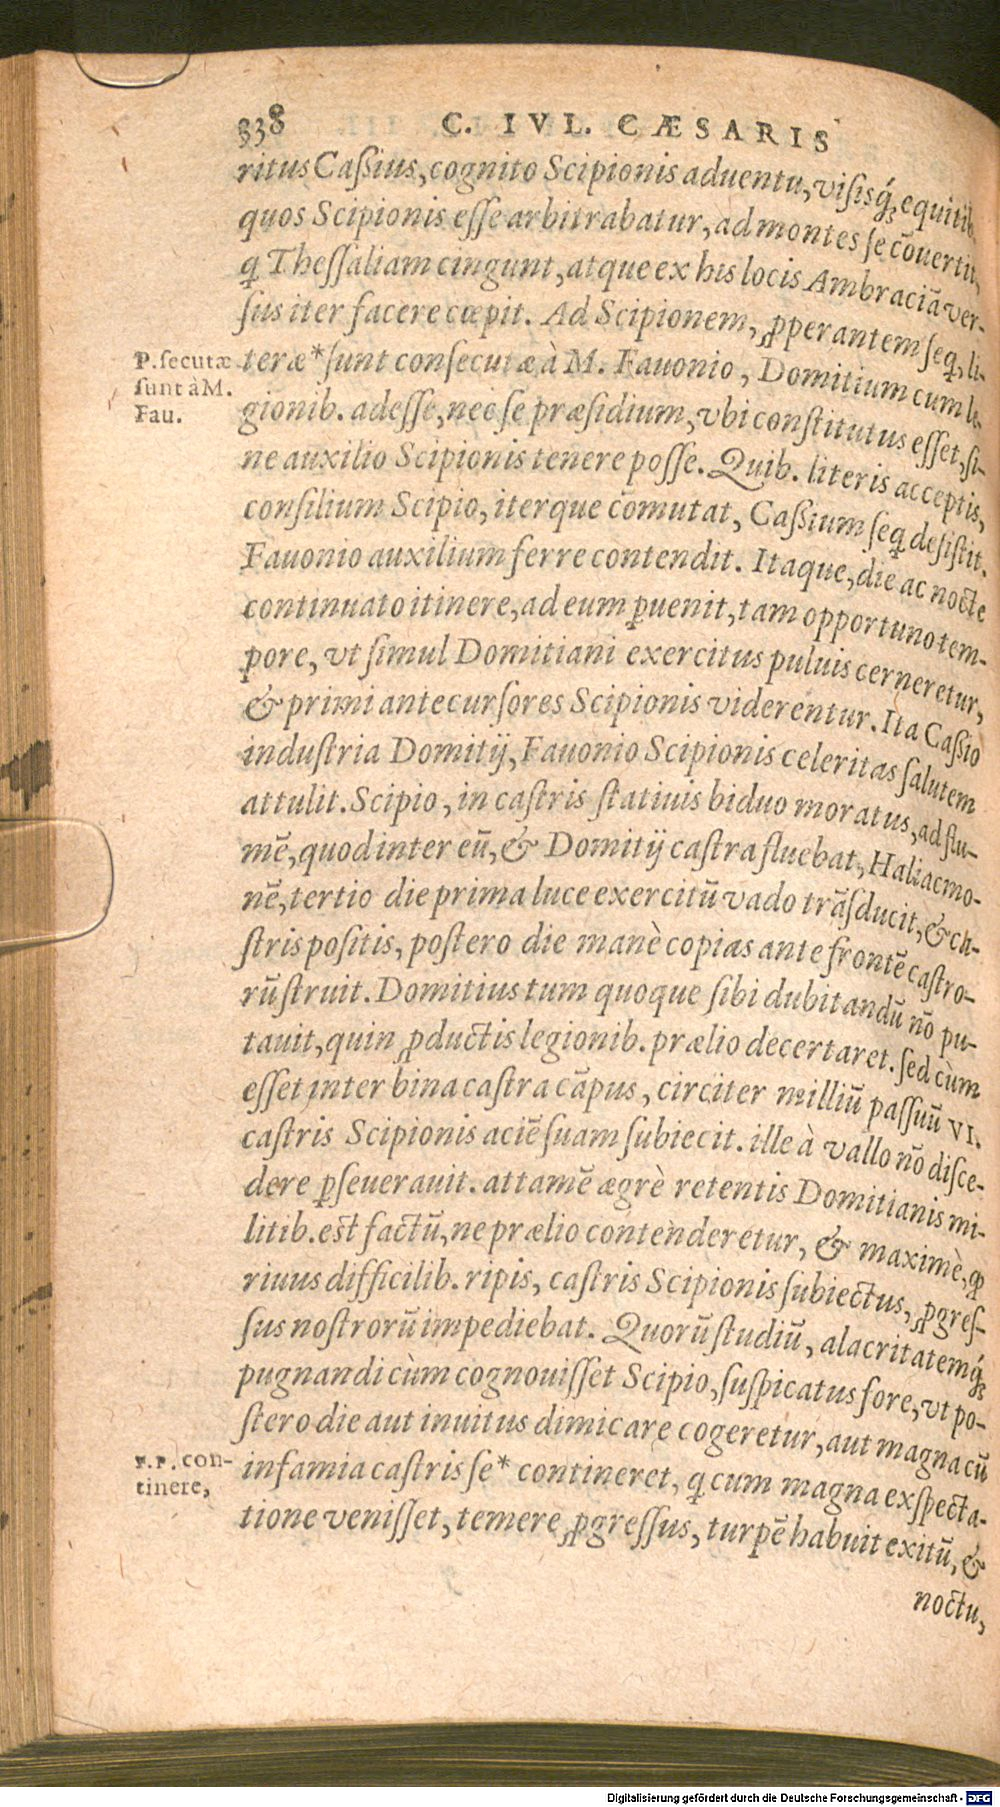 338 C. IVL. CÆSARIS
ritus Caſſius, cognito Scipionis aduentu, viſisq́; equitib.
quos Scipionis eſſe arbitrabatur, ad montes ſe cōuertit,
ꝗ Theſſaliam cingunt, atque ex his locis Ambraciā ver-
ſus iter facere cœpit. Ad Scipionem, ꝓperantem ſeꝗ, li-
P. ſecutæ
ſunt à M.
Fau.
teræ* ſunt conſecutæ à M. Fauonio, Domitium cum le-
gionib. adeſſe, nec ſe præſidium, vbi conſtitutus eſſet, ſi-
ne auxilio Scipionis tenere poſſe. Quib. literis acceptis,
conſilium Scipio, iterque cōmutat, Caſſium ſeꝗ deſiſtit,
Fauonio auxilium ferre contendit. Itaque, die ac nocte
continuato itinere, ad eum ꝑuenit, tam opportuno tem-
pore, vt ſimul Domitiani exercitus puluis cerneretur,
& primi antecurſores Scipionis viderentur. Ita Caſſio
induſtria Domitij, Fauonio Scipionis celeritas ſalutem
attulit. Scipio, in caſtris ſtatiuis biduo moratus, ad flu-
mē, quod inter eū, & Domitij caſtra fluebat, Haliacmo-
nē, tertio die prima luce exercitū vado trāſducit, & ca-
ſtris poſitis, poſtero die manè copias ante frontē caſtro-
rū ſtruit. Domitius tum quoque ſibi dubitandū nō pu-
tauit, quin ꝓductis legionib. prælio decertaret. ſed cùm
eſſet inter bina caſtra cāpus, circiter milliū paſſuū VI.
caſtris Scipionis aciē ſuam ſubiecit. ille à vallo nō diſce-
dere ꝑſeuerauit. attamē ægrè retentis Domitianis mi-
litib. eſt factū, ne prælio contenderetur, & maximè, ꝙ
riuus difficilib. ripis, caſtris Scipionis ſubiectus, ꝓgreſ-
ſus noſtrorū impediebat. Quorū ſtudiū, alacritatemq́;
pugnandi cùm cognouiſſet Scipio, ſuſpicatus fore, vt po-
ſtero die aut inuitus dimicare cogeretur, aut magna cū
F. P. con-
tinere,
infamia caſtris ſe* contineret, ꝗ cum magna exſpecta-
tione veniſſet, temere ꝓgreſſus, turpē habuit exitū, &
noctu,
Digitalisierung gefördert durch die Deutsche Forschungsgemeinschaft - DFG